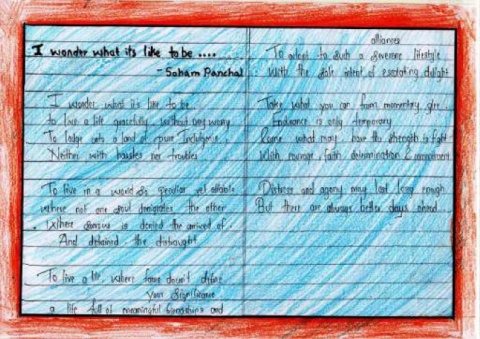 I wonder what its like to be ....
- Soham Panchal
I wonder what it's like to be
To live a life gracefully, without any worry
To lodge into a land of pure indulgence,
Neither with hassles nor troubles
To live in a world so peculiar yet
Where not one soul denigrates the other
Where is denied the arrival of
And detained the distraught
To live a life, where fame doesn't define
Your significance
a life full of meaningful friendships and
alliances
To adapt to such a lifestyle
With the sole intent of delight
Take what you can from momentary glee,
Endurance is only temporary
Come what may, have the strength to fight
With courage, faith determination & commitment
Distress and agony may last long enough
But there are always better days ahead...